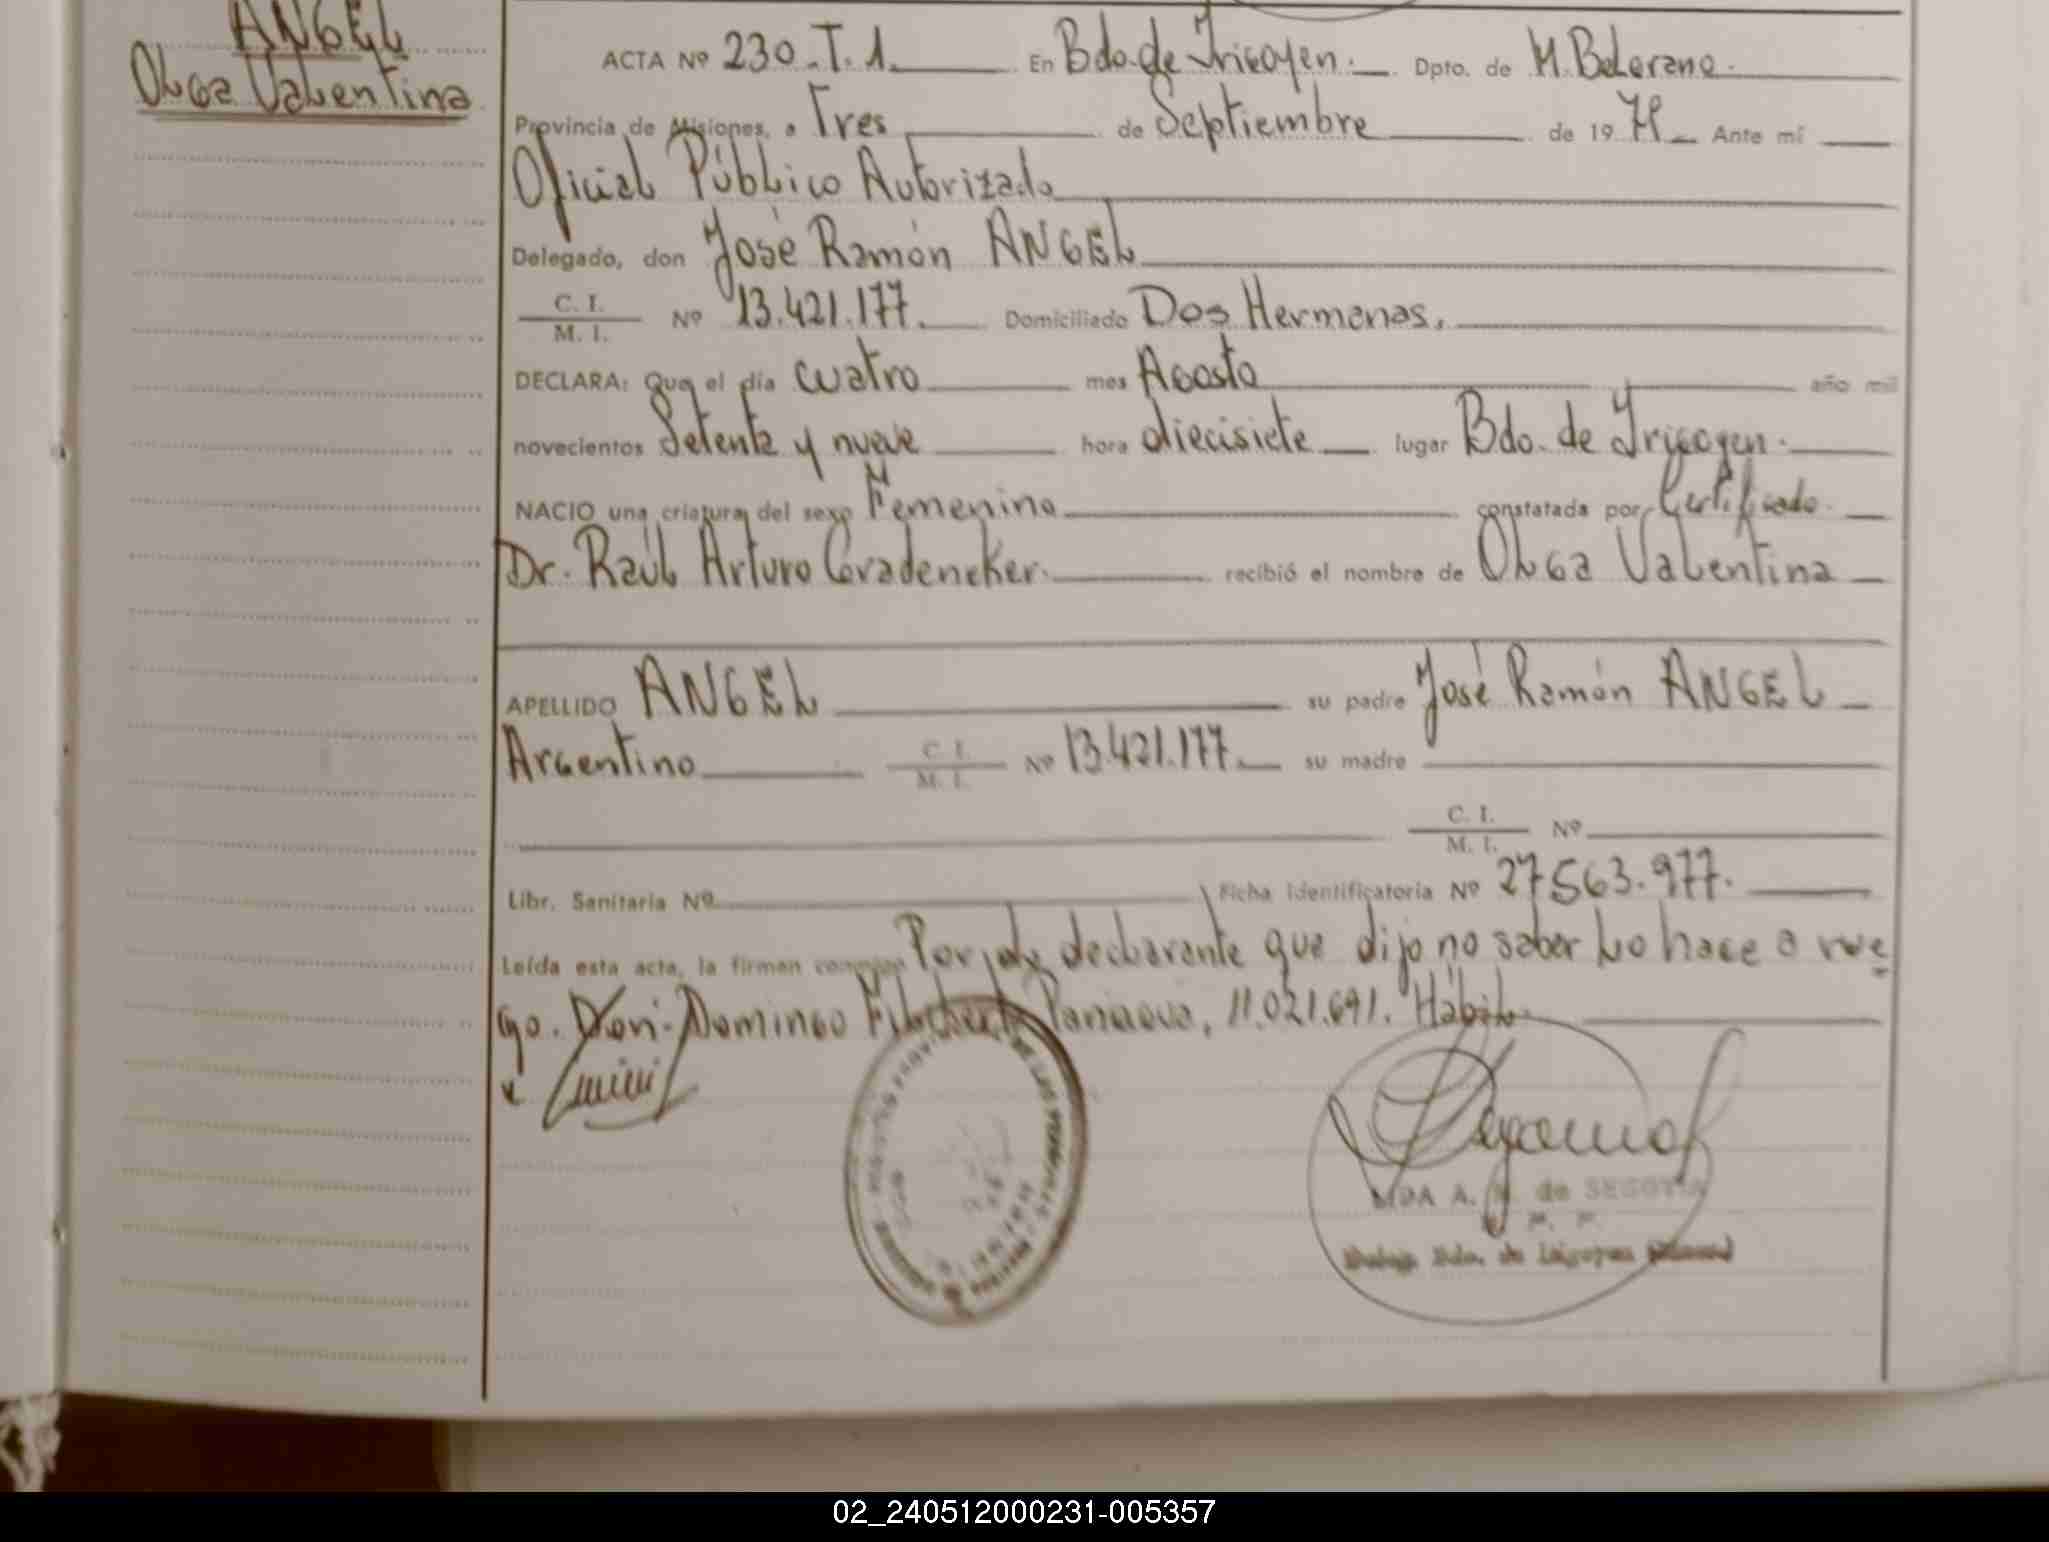 ANGEL
Olga Valentina
ACTA Nº 230.T.1. En Bdo. de Irigoyen. Dpto. de M. Belgrano.
Provincia de Misiones, a Tres de Septiembre de 19 79 Ante mí
Oficial Público Autorizado
Delegado, don José Ramón ANGEL
C. I.
M. I. Nº 13.421.177. Domiciliado Dos Hermanas.
DECLARA: Que el día cuatro mes Agosto año mil
novecientos Setenta y nueve hora diecisiete lugar Bdo. de Irigoyen.
NACIO una criatura del sexo Femenino constatada por Certificado.
Dr. Raúl Arturo Gradeneker. recibió el nombre de Olga Valentina
APELLIDO ANGEL su padre José Ramón ANGEL
Argentino C. I.
M. I. Nº 13.421.177. su madre
C. I.
M. I. Nº
Libr. Sanitaria Nº Ficha identificatoria Nº 27563.977.
Leída esta acta, la firman conmigo Por el declarante que dijo no saber lo hace a rue
go. Don. Domingo 11.021.691. Hábil.
A. de SEGOVIA
02_240512000231-005357